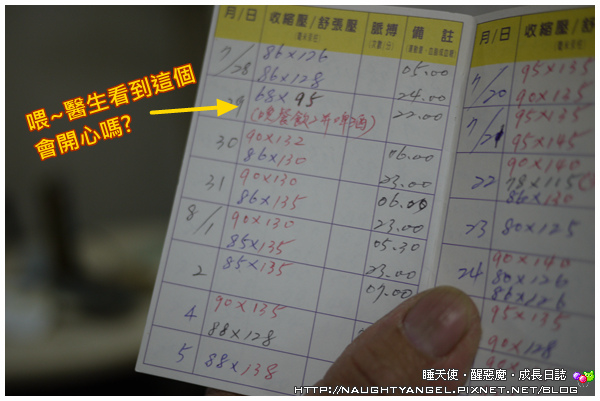 月/日 收縮壓/舒張壓 脈搏 備註
7/28 86×126 05.00
86×128 24.00
29 68×95 22.00
(晚餐飲2瓶啤酒)
30 90×132 06.00
86×130 23.00
31 90×130 06.00
86×135 23.00
8/1 90×130 05.30
85×135 23.00
2 85×135 07.00
4 90×135
88×128
5 88×138
月/日 收縮壓
7/20 95×135
90×135
7/21 95×135
95×145
22 90×140
78×115
86×130
23 80×125
24 90×140
80×126
86×126
95×135
90×128
喂~醫生看到這個
會開心嗎?
睡天使‧醒惡魔‧成長日誌
HTTP://NAUGHTYANGEL.PIXNET.NET/BLOG